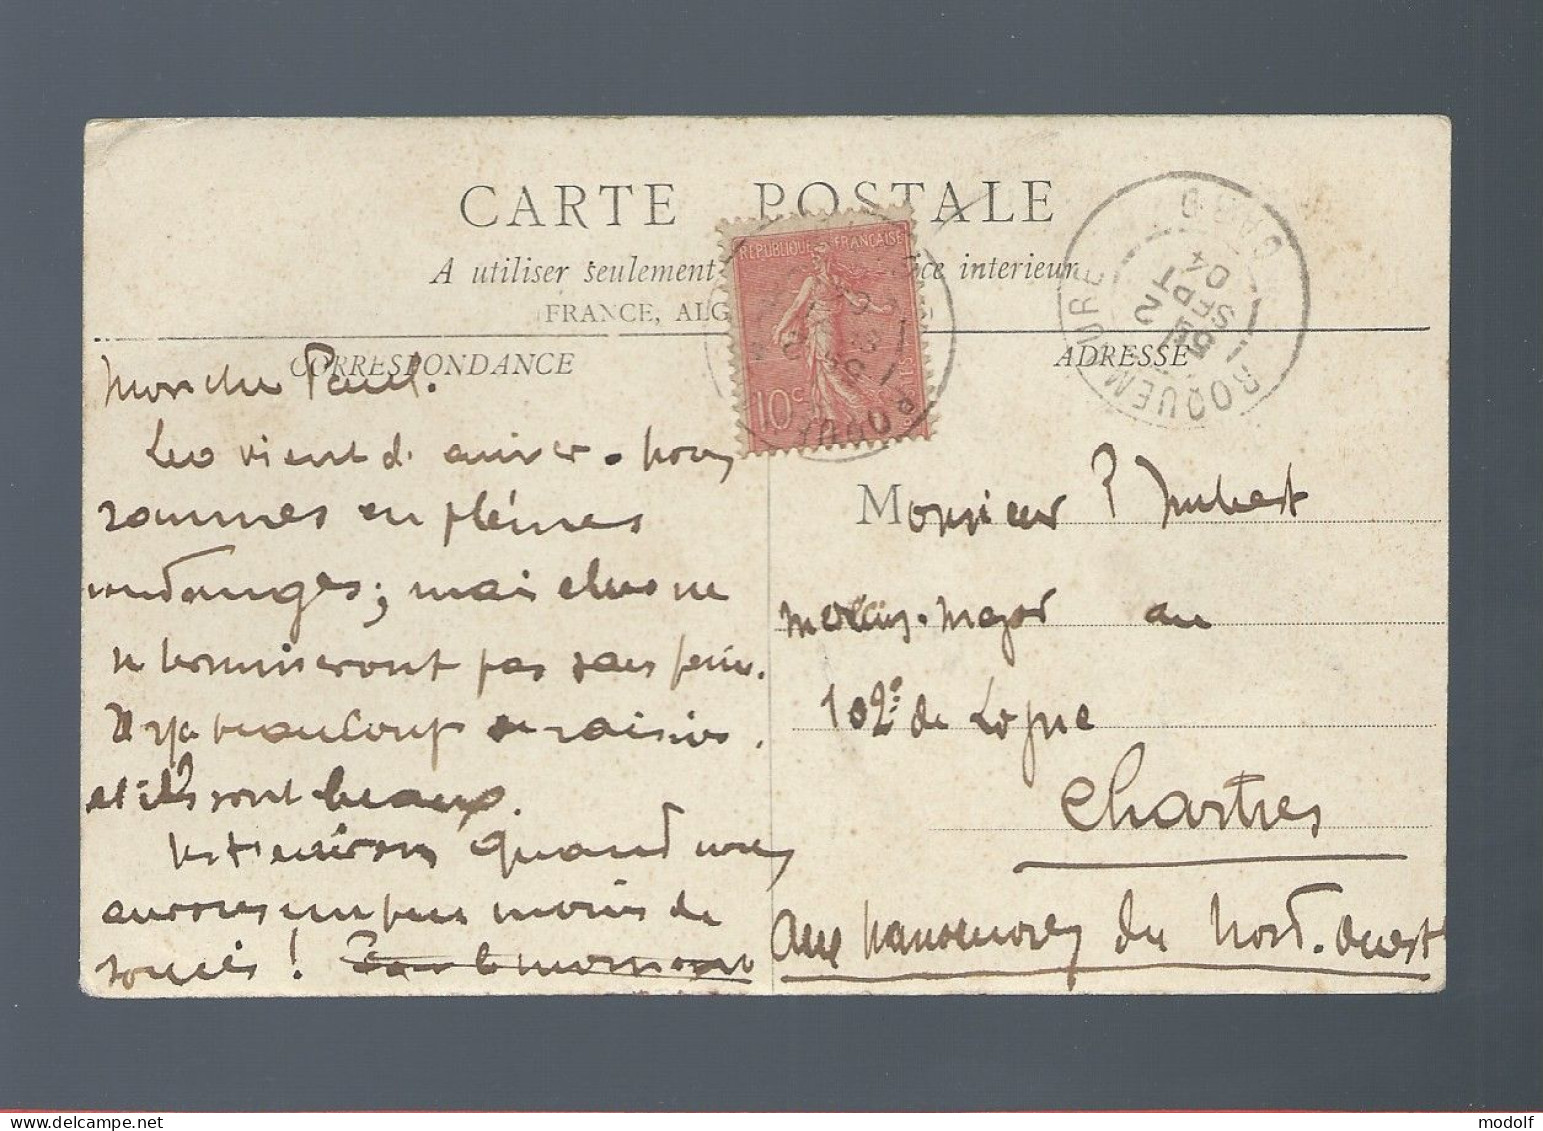 CARTE POSTALE
A utiliser seulement intérieur
FRANCE, ALG
CORRESPONDANCE
ADRESSE
RÉPUBLIQUE FRANÇAISE
10c
ROQUEMAURE GARD
5E
2
SEPT
04
Mon cher Paul.
Léo vient d'arriver. nous
sommes en pleines
vendanges; mais elles ne
se termineront pas sans peine.
Il y a beaucoup de raisins.
et ils sont beaux.
quand nous
aurons un peu moins de
soucis! Pour le moment
Monsieur P Imbert
médecin-major au
102e de Ligne
Chartres
aux manoeuvres du Nord-Ouest
www.delcampe.net
modolf